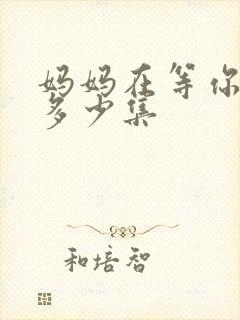 妈妈在等你
多少集
和培智